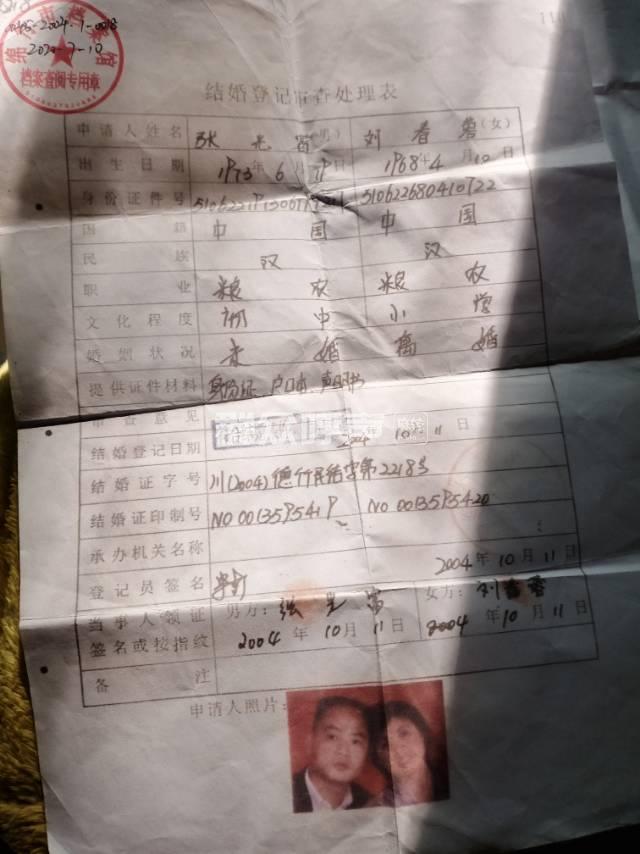 2020-7-10
档案查阅专用章
结婚登记审查处理表
申请人姓名 (男) 刘春蓉 (女)
出生日期 1973年6月 日 1968年4月10日
身份证件号 510622680410722
国籍 中国 中国
民族 汉 汉
职业 粮农 粮农
文化程度 初中 小学
婚姻状况 未婚 离婚
提供证件材料 身份证、户口本、声明书
审查意见
结婚登记日期 2004年10月11日
结婚证字号 川(2004)德行民结字第2218号
结婚证印制号 NO 001359541 NO 0013595420
承办机关名称
2004年10月11日
登记员签名
当事人领证 男方: 女方: 刘春蓉
签名或按指纹 2004年10月11日 2004年10月11日
备注
申请人照片: